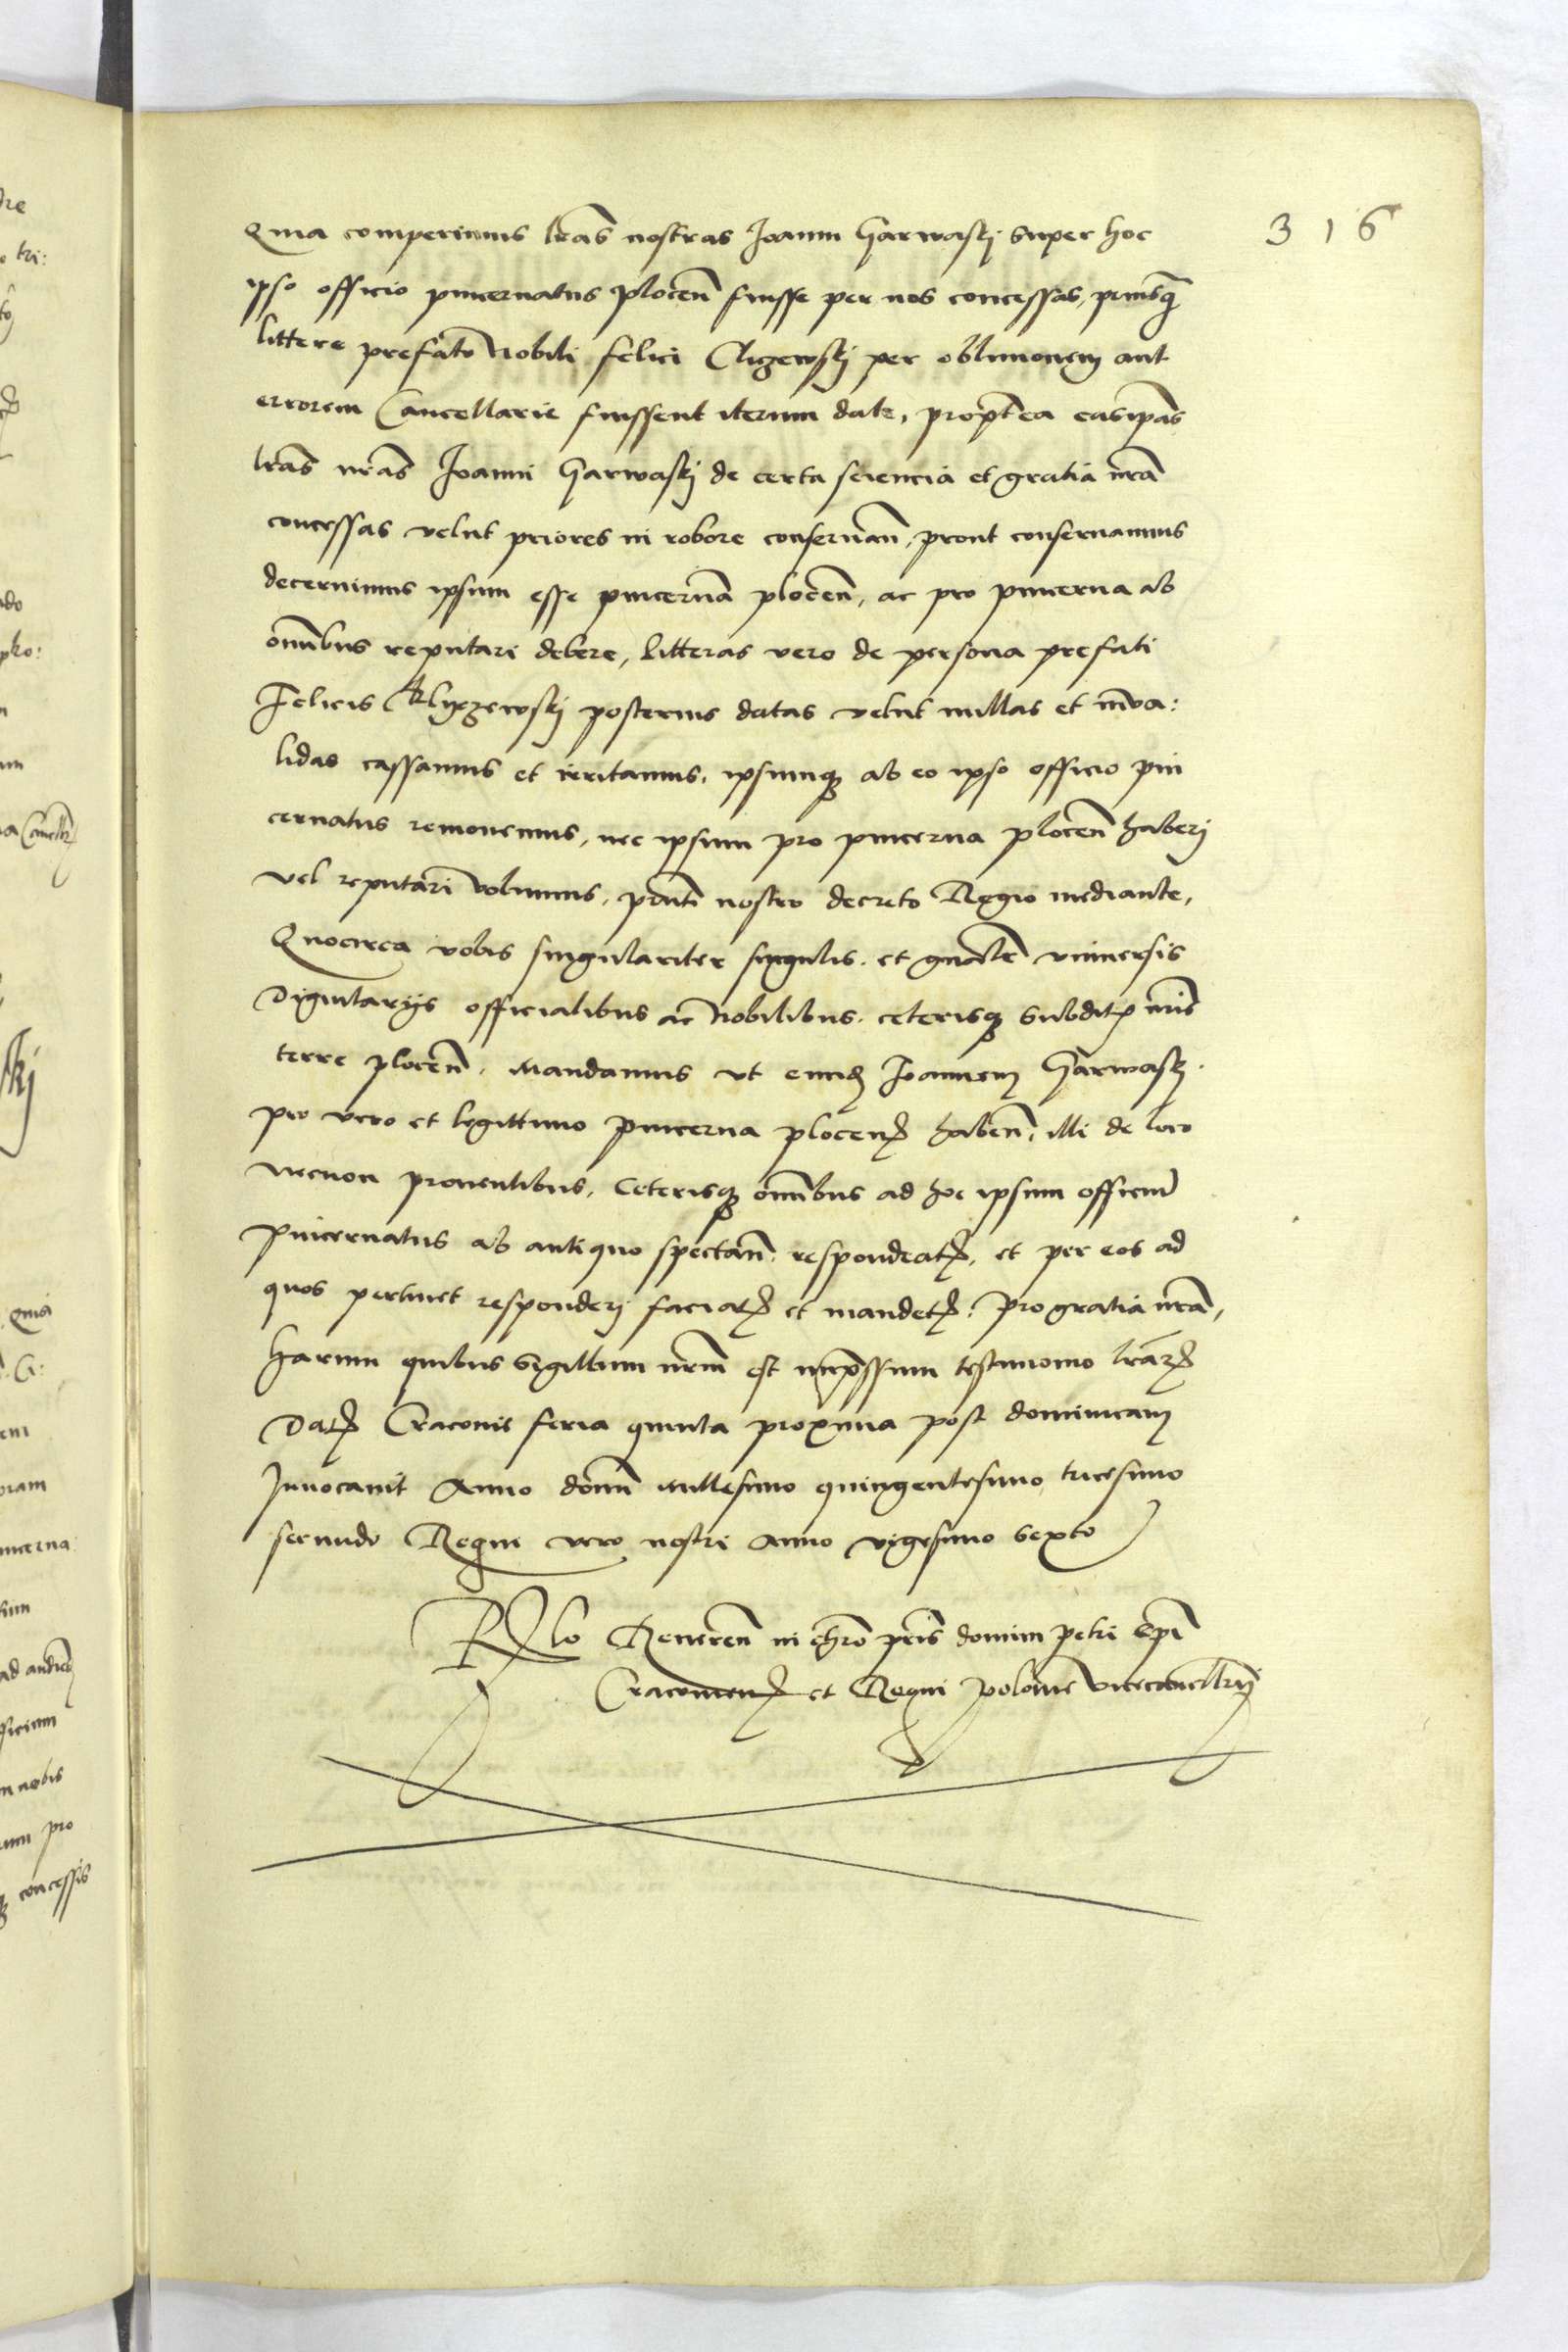 316
Quia comperimus lras nostras Joanni Garwaskj super hoc
ipso officio pincernatus plocen fuisse per nos concessas, priusq
littere prefato Nobili felici Cligewskj per oblivionem aut
errorem Cancellarie fuissent iterum date, proptea easipas
lras nras Joanni Garwaskj de certa sciencia et gratia nra
concessas velut priores in robore conservan, prout conservamus
decernimus ipsum esse pincernam plocen, ac pro pincerna ab
omnibus reputari debere, litteras vero de persona prefati
Felicis Klyxzewskj posterius datas velut nullas et inva:
lidas cassamus et irritamus, ipsumq ab eo ipso officio pin
cernatus removemus, nec ipsum pro pincerna plocen haberj
vel reputari volumus, pnti nostro decreto Regio mediante,
Quocirca vobis singulariter singulis et gnalr universis
Dignitarijs officialibus ac Nobilibus ceterisq subdit nris
terre plocen, Mandamus ut eund Joannem Garwaskj
pro vero et legittimo pincerna plocen haben, illi de loco
necnon proventibus, ceterisq omnibus ad hoc ipsum officium
pincernatus ab antiquo spectan respondeat, et per eos ad
quos pertinet responderj faciat et mandet, pro gratia nra,
harum quibus sigillum nrm est impressum testimonio lrar
Dat Cracovie feria quinta proxima post dominicam
Invocavit Anno domi Millesimo quingentesimo tricesimo
secundo Regni vero nostri Anno vigesimo sexto
Rlo Reveren in chro pris domini petri Epi
Cracovien et Regni polonie vicecancellrij